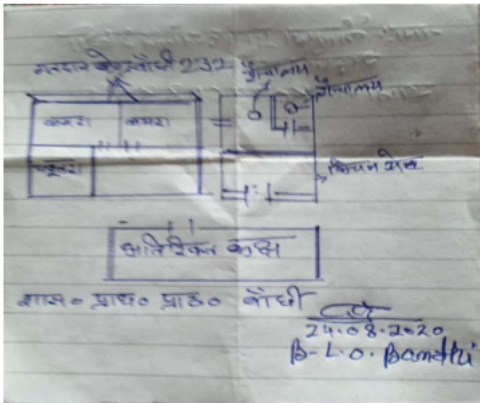 मतदान केन्द्र बाँधी 232
शौचालय
शौचालय
कमरा
कमरा
किचन शेड
अतिरिक्त कक्ष
शास० प्राथ० पाठ० बाँधी
24.08.2020
B-L.O. Bandhi